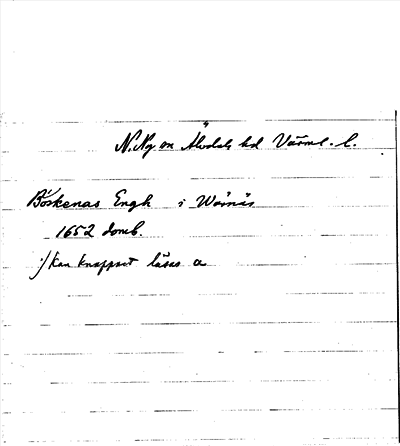 N. Ny sn Älvdals hd Värml. l.
Böskenas Engh i Wärnäs
1652 domb.
1) kan knappast läsas a